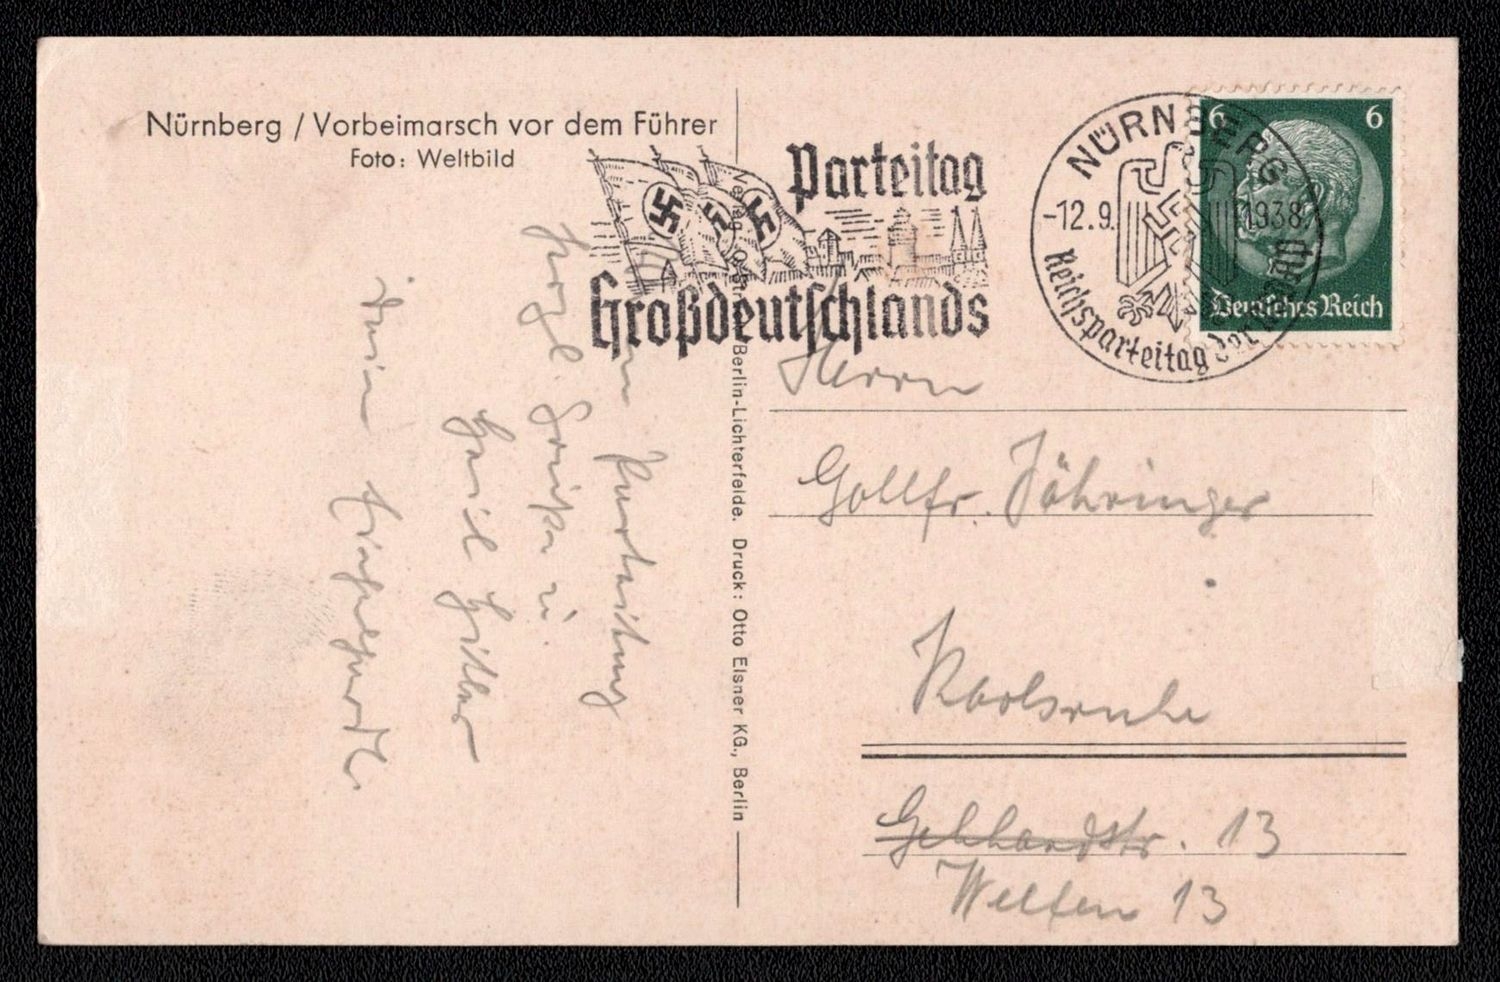 Nürnberg / Vorbeimarsch vor dem Führer
Foto: Weltbild
Parteitag
Großdeutschlands
NÜRNBERG
-12.9.1938
Reichsparteitag der
6 6
Deutsches Reich
Berlin-Lichterfelde. Druck: Otto Elsner KG., Berlin
Parteitag
Grüße u.
Heil Hitler
Herrn
Gottfr. Zähringer
Karlsruhe
Gebhardstr. 13
Welfen 13